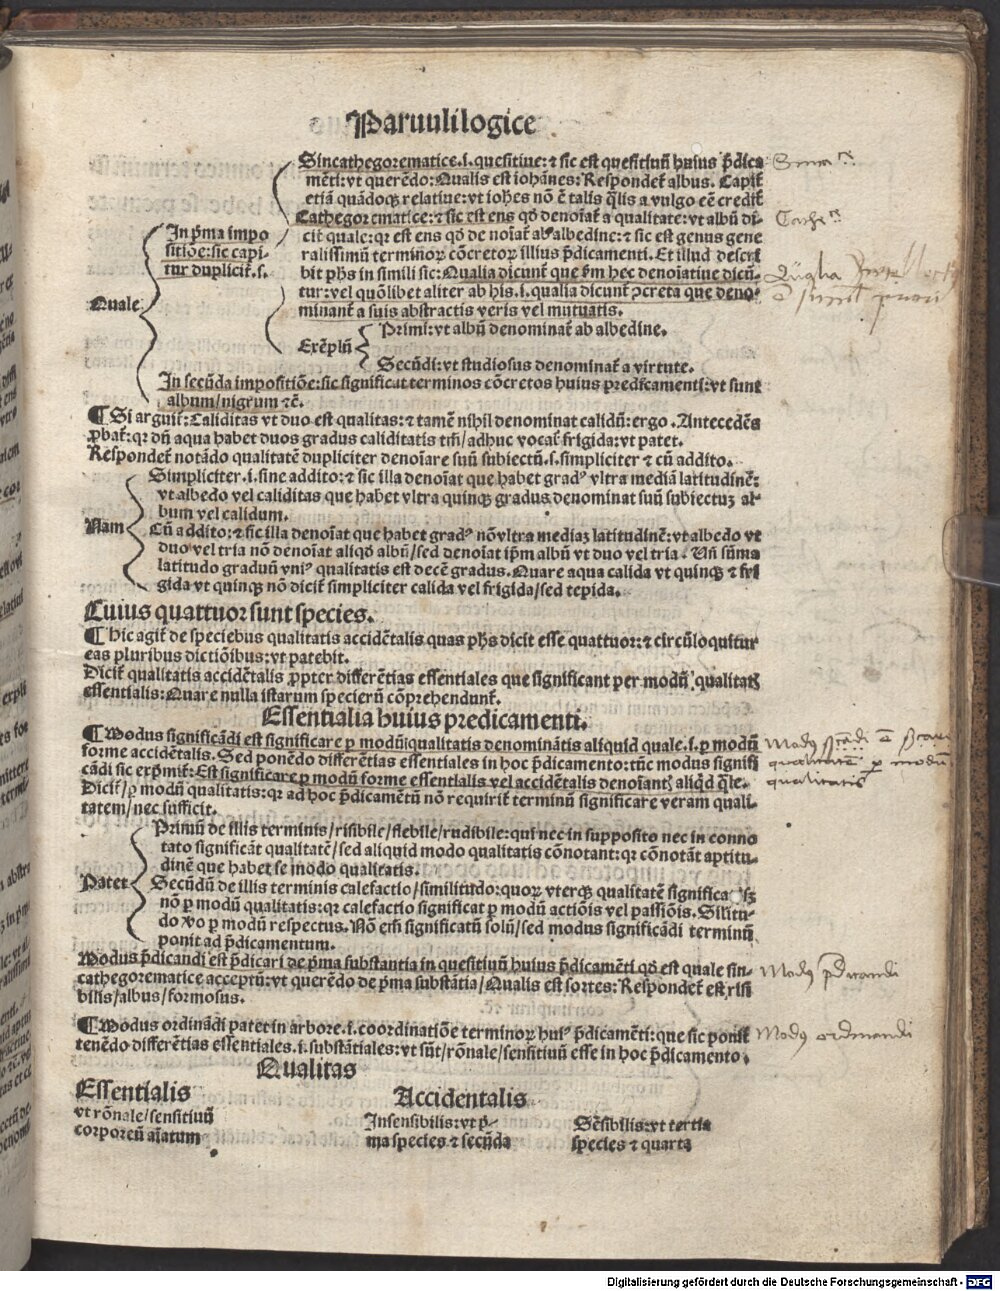 Paruuli logice
Sincathegorematice .i. quesitiue: ⁊ sic est quesitiuũ huius p̃dica
mẽti: vt querẽdo: Qualis est iohãnes: Respondet̃ albus. Capit̃
etiã quãdoqȝ relatiue: vt iohẽs nõ ẽ talis q̃lis a vulgo eẽ credit̃
Cathegorematice: ⁊ sic est ens qď denoĩat̃ a qualitate: vt albũ di-
cit̃ quale: qꝛ est ens qď de noĩat̃ ab albedine: ⁊ sic est genus gene
ralissimũ terminoꝝ cõcretoꝝ illius p̃dicamenti. Et illud descri
bit phũs in simili sic: Qualia dicunt̃ que ẽm hec denoĩatiue dicũ-
tur: vel quõlibet aliter ab his .i. qualia dicunt̃ ꝯcreta que deno-
minant̃ a suis abstractis veris vel mutuatis.
In p̃ma impo
sitiõe: sic capi-
tur duplicit̃ .s.
Quale
Exẽplũ
Primi: vt albũ denominat̃ ab albedine.
Secũdi: vt studiosus denominat̃ a virtute.
In secũda impositiõe: sic significat terminos cõcretos huius predicamenti: vt sunt
album/nigrum ⁊c̃.
¶ Si arguit̃: Caliditas vt duo est qualitas: ⁊ tamẽ nihil denominat calidũ: ergo. Antecedẽs
ꝓbat̃: qꝛ dñ aqua habet duos gradus caliditatis tm̃/adhuc vocat̃ frigida: vt patet.
Respondet̃ notãdo qualitatẽ dupliciter denoĩare suũ subiectũ .s. simpliciter ⁊ cũ addito.
Simpliciter .i. sine addito: ⁊ sic illa denoĩat que habet gradꝰ vltra mediã latitudinẽ:
vt albedo vel caliditas que habet vltra quinqȝ gradus denominat suũ subiectuȝ al-
bum vel calidum.
Nam
Cũ addito: ⁊ sic illa denoĩat que habet gradꝰ nõ vltra mediaȝ latitudinẽ: vt albedo vt
duo vel tria nõ denoĩat aliqď albũ/sed denoĩat ip̃m albũ vt duo vel tria. Vñ sũma
latitudo graduũ vniꝰ qualitatis est decẽ gradus. Quare aqua calida vt quinqȝ ⁊ fri
gida vt quinqȝ nõ dicit̃ simpliciter calida vel frigida/sed tepida.
Cuius quattuor sunt species.
¶ Hic agit̃ de speciebus qualitatis accidẽtalis quas phũs dicit esse quattuor: ⁊ circũloquitur
eas pluribus dictiõibus: vt patebit.
Dicit̃ qualitatis accidẽtalis ꝓpter differẽtias essentiales que significant per modũ qualitatis
essentialis: Quare nulla istarum specierũ cõprehendunt̃.
Essentialia huius predicamenti.
¶ Modus significãdi est significare ꝑ modũ qualitatis denominãtis aliquid quale .i. ꝑ modũ
forme accidẽtalis. Sed ponẽdo differẽtias essentiales in hoc p̃dicamento: tũc modus signifi
cãdi sic exp̃mit̃: Est significare ꝑ modũ forme essentialis vel accidẽtalis denoĩant̃ aliqď q̃le.
Dicit̃/ꝑ modũ qualitatis: qꝛ ad hoc p̃dicamẽtũ nõ requirit̃ terminũ significare veram quali-
tatem/nec sufficit.
Primũ de illis terminis/risibile/flebile/rudibile: qui nec in supposito nec in conno
tato significãt qualitatẽ/sed aliquid modo qualitatis cõnotant: qꝛ cõnotãt aptitu-
dinẽ que habet se modo qualitatis.
Patet
Secũdũ de illis terminis calefactio/similitudo: quoꝝ vterqȝ qualitatẽ significat sȝ
nõ ꝑ modũ qualitatis: qꝛ calefactio significat ꝑ modũ actiõis vel passiõis. Silitu-
do ꝟo ꝑ modũ respectus. Nõ em̃ significatũ solũ/sed modus significãdi terminũ
ponit ad p̃dicamentum.
Modus p̃dicandi est p̃dicari de p̃ma substantia in quesitiuũ huius p̃dicamẽti qď est quale sin-
cathegorematice acceptũ: vt querẽdo de p̃ma substãtia/Qualis est sortes: Respondet̃ est risi
bilis/albus/formosus.
¶ Modus ordinãdi patet in arbore .i. coordinatiõe terminoꝝ huiꝰ p̃dicamẽti: que sic ponit̃
tenẽdo differẽtias essentiales .i. substãtiales: vt sũt/rõnale/sensitiuũ esse in hoc p̃dicamento.
Qualitas
Essentialis
vt rõnale/sensitiuũ
corporeũ aĩatum
Accidentalis
Insensibilis: vt p̃-
ma species ⁊ secũda
Sẽsibilis: vt tertia
species ⁊ quarta
Modꝰ p̃dicandi
Modꝰ ordinandi
Digitalisierung gefördert durch die Deutsche Forschungsgemeinschaft - DFG